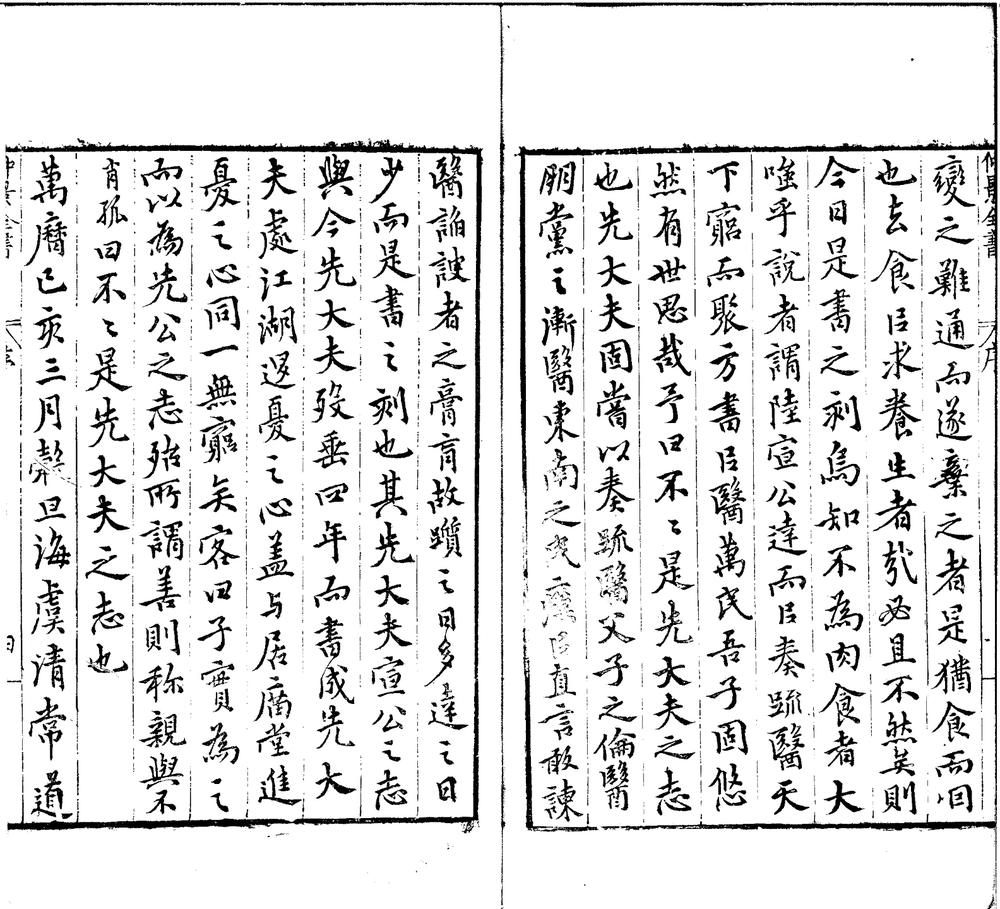 仲景全書
序
變之難通而遂棄之者是猶食而咽
也去食以求養生者哉必且不然矣則
今日是書之刻烏知不為肉食者大
嗤乎說者謂陸宣公達而以奏疏醫天
下窮而聚方書以醫萬民吾子固悠
然有世思哉予曰不〻是先大夫之志
也先大夫固嘗以奏疏醫父子之倫醫
朋黨之漸醫東南之民瘼以直言敢諫
醫諂諛者之膏肓故躓之日多達之日
少而是書之刻也其先大夫宣公之志
與今先大夫歿垂四年而書成先大
夫處江湖退憂之心盖与居廟堂進
憂之心同一無窮矣客曰子實為之
而以為先公之志殆所謂善則称親與不
肖孤曰不〻是先大夫之志也
萬曆己亥三月穀旦海虞清常道
仲景全書
四